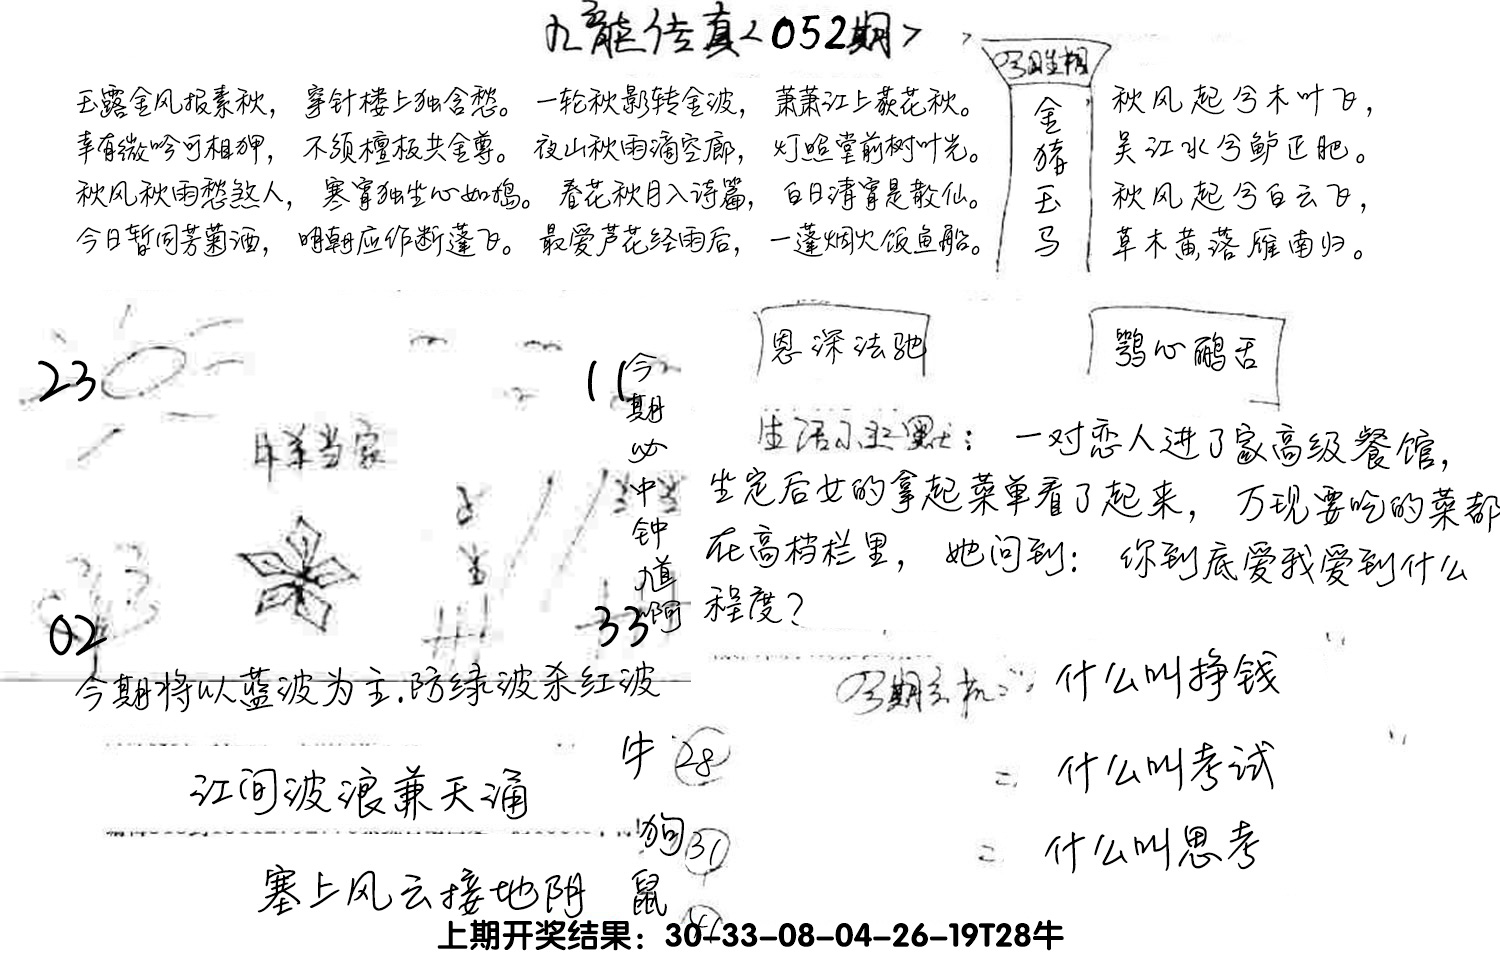 九龙传真<052期>
玉露金风报素秋，穿针楼上独含愁。一轮秋影转金波，萧萧江上荻花秋。
幸有微吟可相狎，不须檀板共金尊。夜山秋雨滴空廊，灯照堂前树叶光。
秋风秋雨愁煞人，寒宵独坐心如捣。春花秋月入诗篇，白日清宵是散仙。
今日暂同芳菊酒，明朝应作断蓬飞。最爱芦花经雨后，一蓬烟火饭鱼船。
金
猪
玉
马
秋风起兮木叶飞，
吴江水兮鲈正肥。
秋风起兮白云飞，
草木黄落雁南归。
恩深法驰
鹗心鹂舌
23
11
今
期
必
中
钟
道
啊
当家
02
33
今期将以蓝波为主.防绿波杀红波
生活小幽默：一对恋人进了家高级餐馆，
坐定后女的拿起菜单看了起来，万现要吃的菜都
在高档栏里，她问到：你到底爱我爱到什么
程度？
什么叫挣钱
= 什么叫考试
= 什么叫思考
江间波浪兼天涌
塞上风云接地阴
牛 28
狗 31
鼠
上期开奖结果：30-33-08-04-26-19T28牛